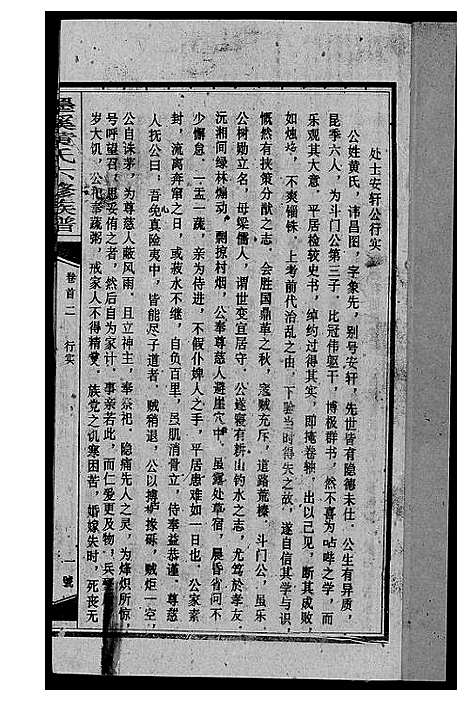 处士安轩公行实
公姓黄氏，讳昌图，字象先，别号安轩，先世皆有隐德未仕。公生有异质，
昆季六人，为斗门公第三子。比冠伟躯干，博极群书，然不喜为呫哔之学，而
乐观其大意，平居检较史书，绰约过得其实，即掩卷轴，出以己见，断其成败，
如烛照，不爽锱铢。上考前代治乱之由，下验当时得失之故，遂自信其学与识，
慨然有挟策分猷之志。会胜国鼎革之秋，寇贼充斥，道路荒榛，斗门公，虽乐
公树勋立名，母梁儒人，谓世变宜居守。公遂寝有耕山钓水之志，尤笃于孝友。
沅湘间绿林煽动，剽掠村烟，公奉慈尊慈人避崖穴中，虽露处草宿，晨昏省问不
少懈怠。一盂一蔬，亲为侍进，不假仆婢人之手，平居患难如一日也。公家素
封，流离奔窜之日，或菽水不继，自负百里，虽肌消骨立，侍奉益恭谨。尊慈
人抚公曰：吾免真险夷中，皆能尽子道者。贼稍退，公以搏栌椽砾，贼炬一空，
公自诛茅，为尊慈人蔽风雨。且立神主，奉祭祀，隐痛先人之灵，为烽炽所惊
号呼望召，思妥侑之者，然后自为家计。事亲若此，而仁爱更及物，兵
岁大饥，公祀奉蔬粥，戒家人不得精爨。族党之饥寒困苦，婚嫁失时，死丧无
墨溪黄氏六修族谱
卷首二
行实
一號